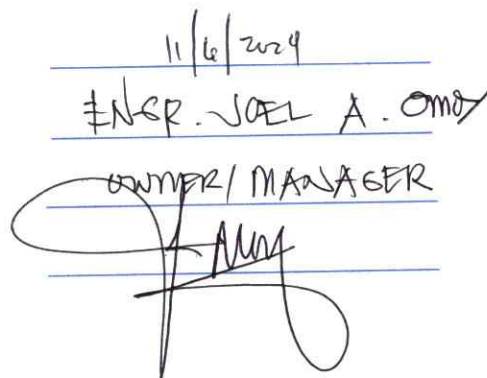 11/6/2024
ENGR. JOEL A. Omoy
OWNER/ MANAGER